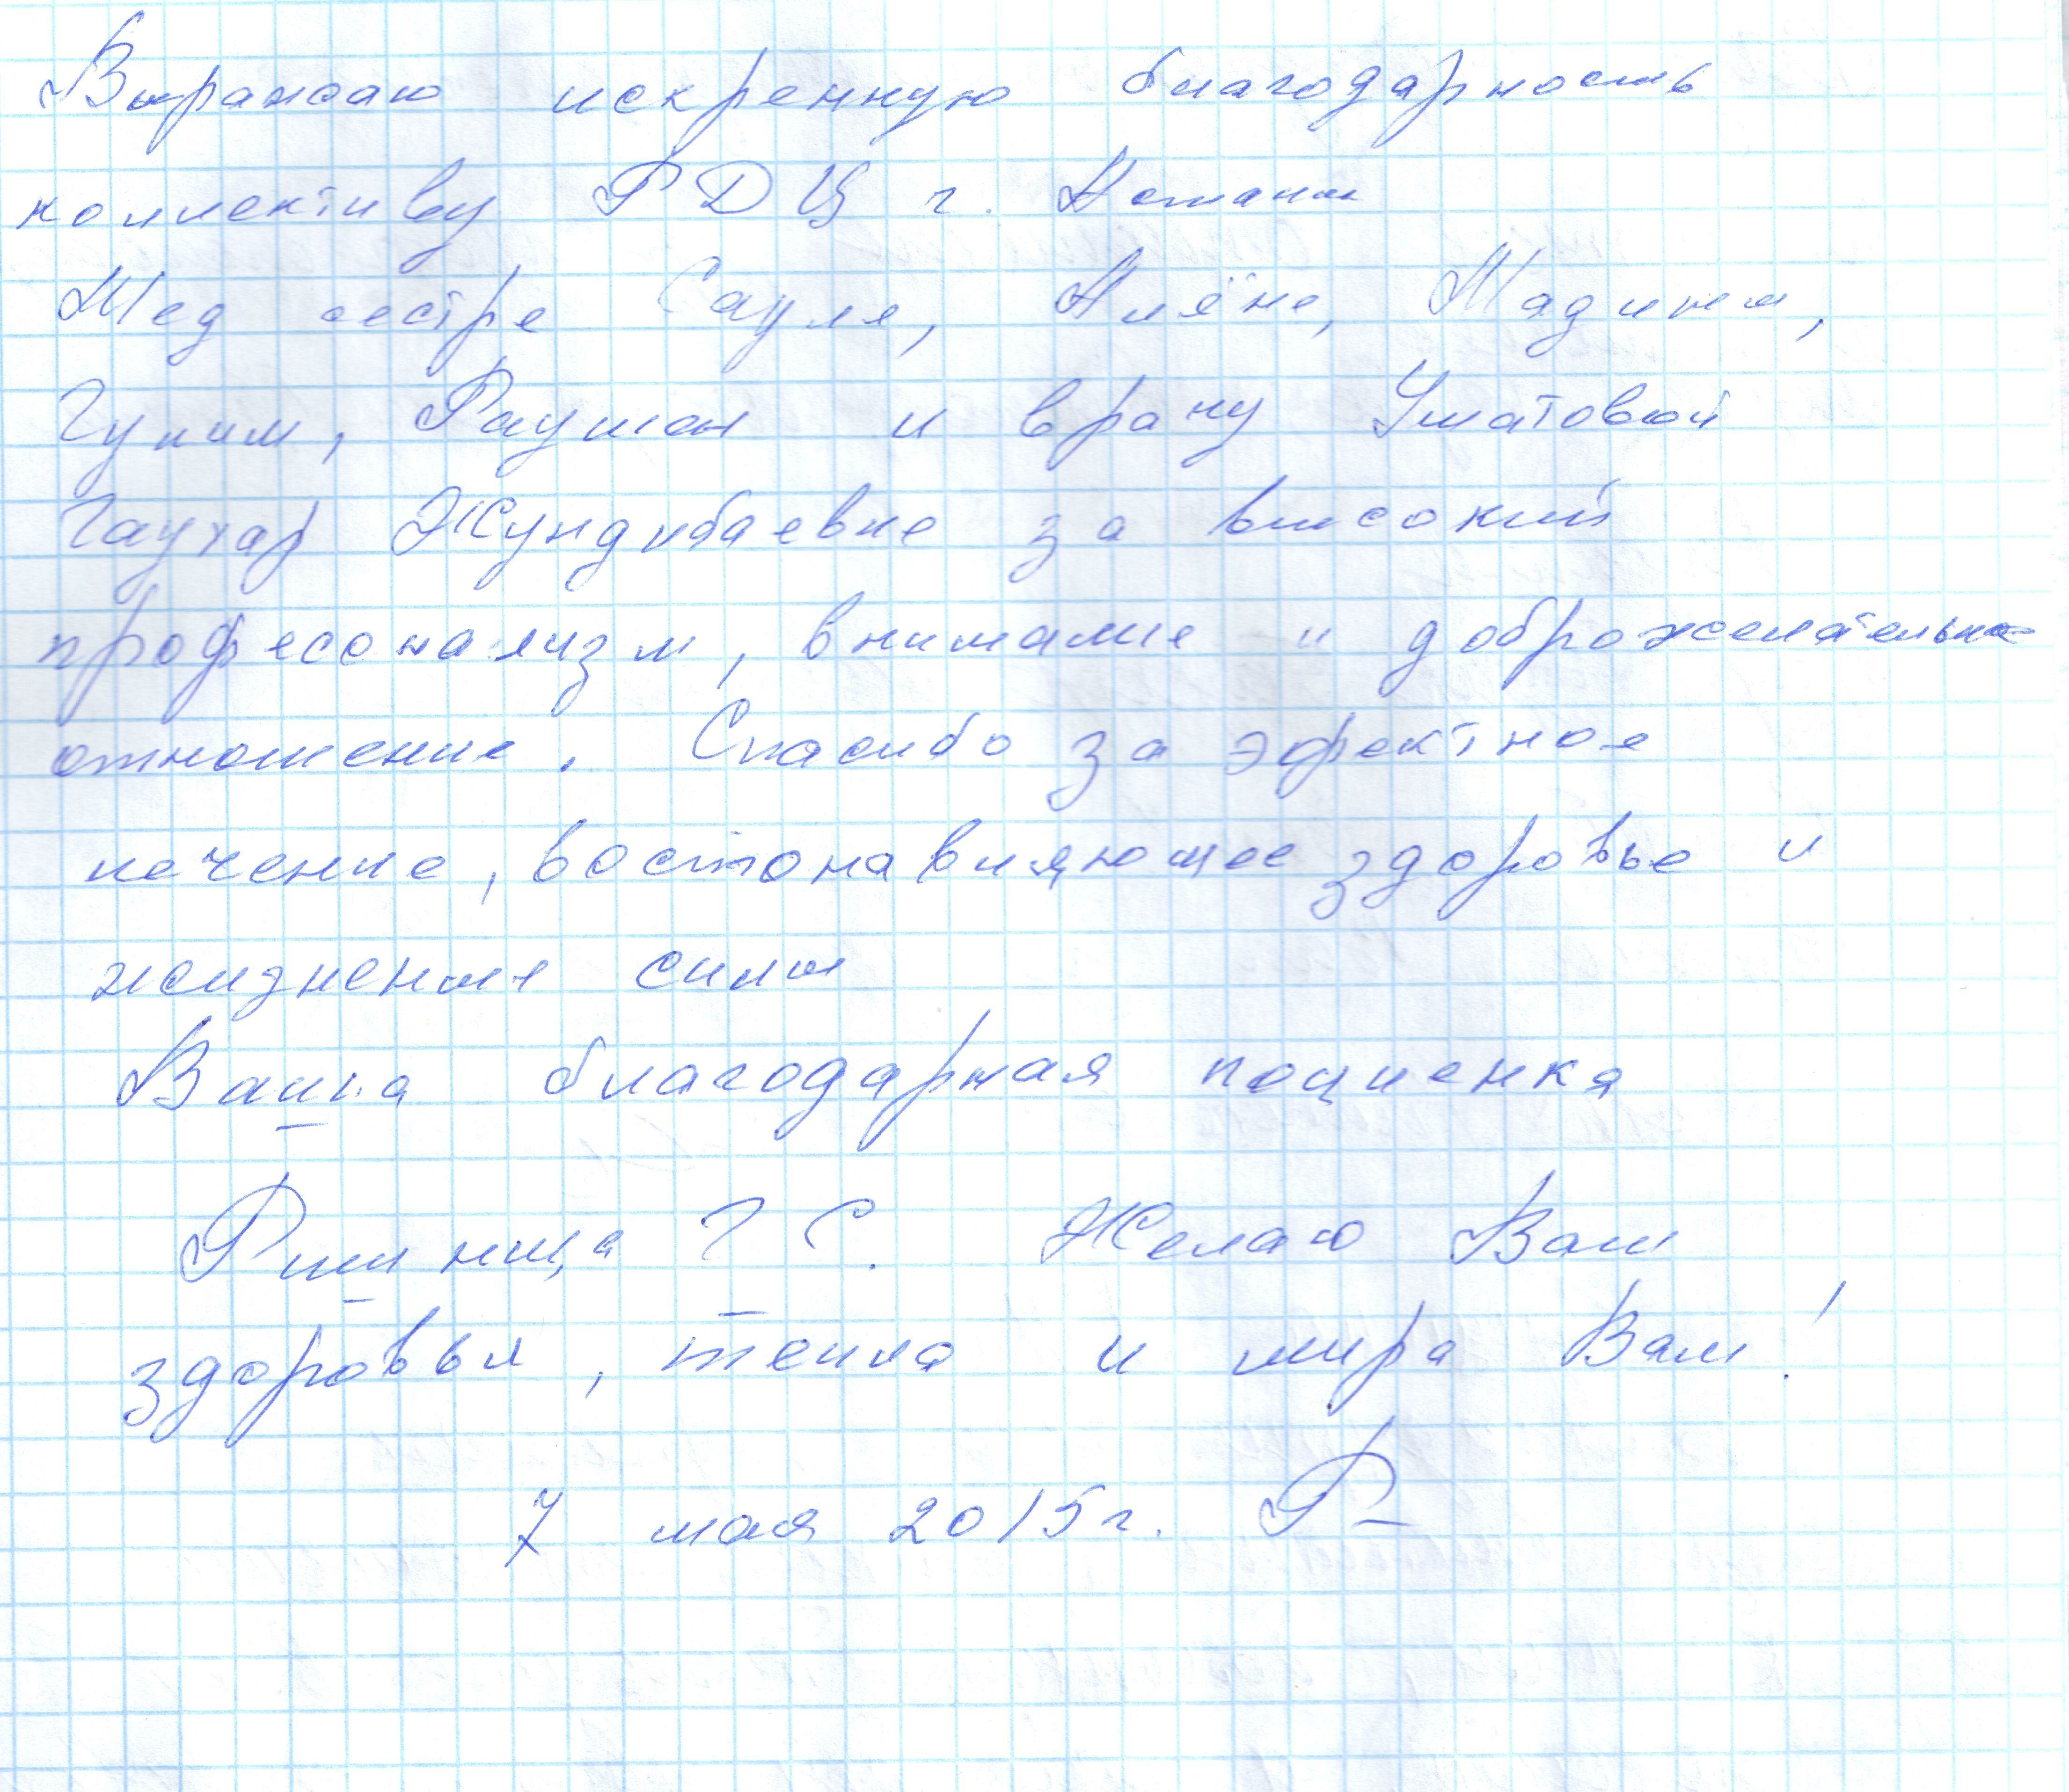 Выражаю искренную благодарность
коллективу РДЦ г. Астаны
Мед сестре Сауле, Алёне, Мадины,
Гулим, Раушан и врачу Уматовой
Гаухар Жундибаевне за высокий
професоонализм, внимание и доброжелательное
отношение. Спасибо за эфектное
лечение, востонавляющее здоровье и
жизненые силы
Ваша благодарная поциенка
Г С. Желаю Вам
здоровья, тепла и мира Вам!
7 мая 2015г.